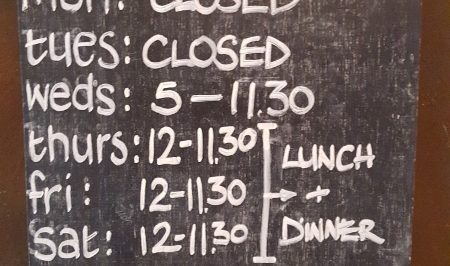 mon: CLOSED
tues: CLOSED
weds: 5-11.30
thurs: 12-11.30 LUNCH
fri: 12-11.30 → +
sat: 12-11.30 DINNER